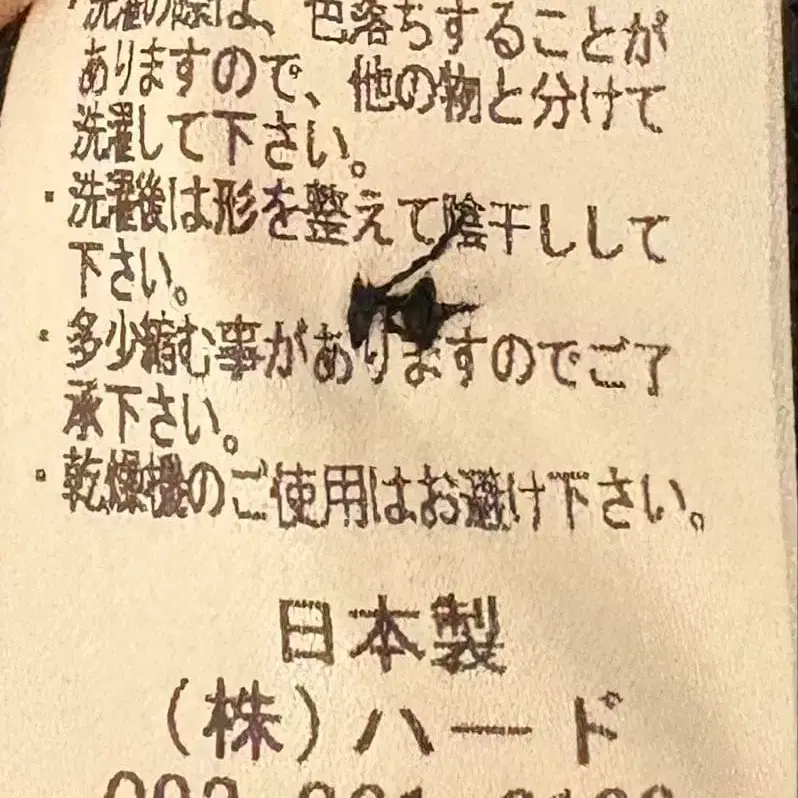 ・洗濯の際は、色落ちすることが
ありますので、他の物と分けて
洗濯して下さい。
・洗濯後は形を整えて陰干しして
下さい。
・多少縮む事がありますのでご了
承下さい。
・乾燥機のご使用はお避け下さい。
日本製
（株）ハード